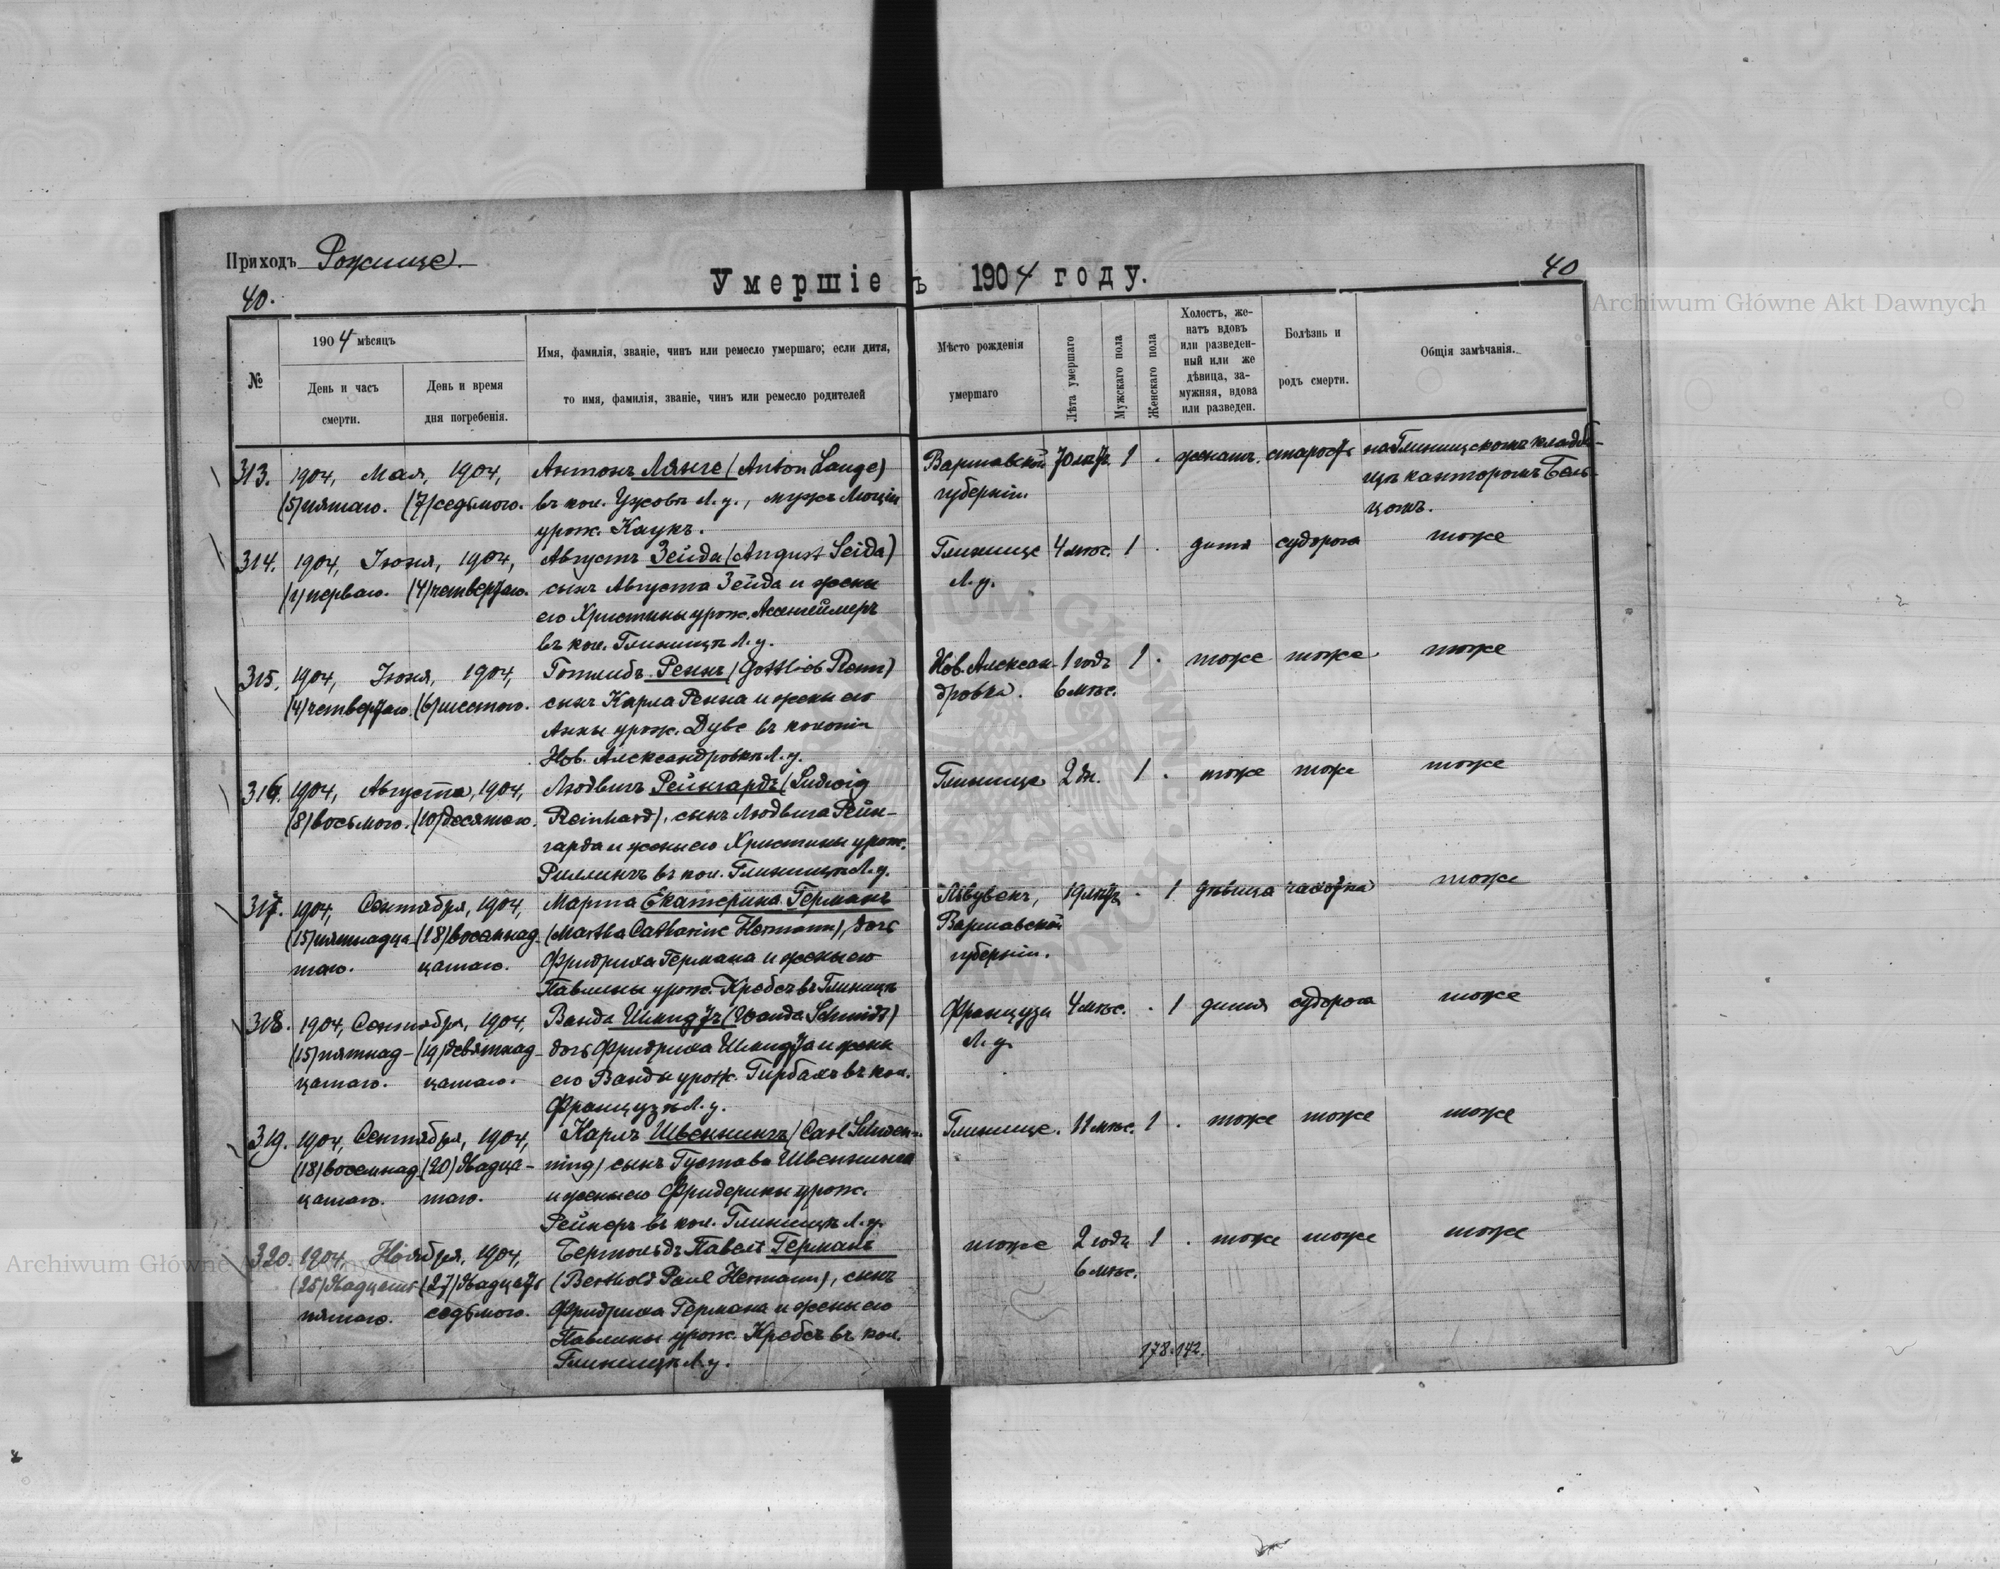 Приходъ Рожище.
Умершіе въ 1904 году.
40.
40
№
1904 мѣсяцъ
День и часъ смерти.
День и время дня погребенія.
Имя, фамилія, званіе, чинъ или ремесло умершаго; если дитя,
то имя, фамилія, званіе, чинъ или ремесло родителей
Мѣсто рожденія
умершаго
Лѣта умершаго
Мужскаго пола
Женскаго пола
Холостъ, же-
натъ вдовъ
или разведен-
ный или же
дѣвица, за-
мужняя, вдова
или разведен.
Болѣзнь и
родъ смерти.
Общія замѣчанія.
313. 1904, Мая, 1904, Антонъ Лянге (Anton Lange) Варшавской 70 лѣтъ 1 . женатъ. старость на Глинищскомъ кладби-
(5) пятаго. (7) седьмого. въ кол. Ужовѣ Л. у., мужъ Люціи губерніи щѣ канторомъ Бель-
урож. Каукъ. цомъ.
314. 1904, Іюня, 1904, Августъ Зейда (August Seida) Глинище 4 мѣс. 1 . дитя судорога тоже
(1) перваго. (4) четвертаго. сынъ Августа Зейда и жены Л. у.
его Христины урож.
въ кол. Глинищѣ Л. у.
315. 1904, Іюня, 1904, Готлибъ Реннъ (Gottlieb Renn) Нов. Алексан- 1 годъ 1 . тоже тоже тоже
(4) четвертаго. (6) шестого. сынъ Карла Ренна и жены его дровка. 6 мѣс.
Анны урож. Дуве въ колоніи
Нов. Александровкѣ Л. у.
316. 1904, Августа, 1904, Людвигъ Рейнгардъ (Ludwig Глинище 2 дн. 1 . тоже тоже тоже
(8) восьмого. (10) десятаго. Reinhard), сынъ Людвига Рейн-
гарда и жены его Христины урож.
Риллингъ въ кол. Глинищѣ Л. у.
317. 1904, Сентября, 1904, Марта Екатерина Германъ 19 лѣтъ . 1 дѣвица чахотка тоже
(15) пятнадца- (18) восемнад- (Martha Catharine Hermann), дочь Варшавской
таго. цатаго. Фридриха Германа и жены его губерніи.
Павлины урож. Кребсъ въ Глинищѣ
318. 1904, Сентября, 1904, Ванда Шмидтъ (Wanda Schmidt) Французы 4 мѣс. . 1 дитя судорога тоже
(15) пятнад- (19) девятнад- дочь Фридриха Шмидта и жены Л. у.
цатаго. цатаго. его Ванды урож. Гирбахъ въ кол.
Французы Л. у.
319. 1904, Сентября, 1904, Карлъ Швеннингъ (Carl Schwen- Глинище. 11 мѣс. 1 . тоже тоже тоже
(18) восемнад- (20) двадца- ning) сынъ Густава Швеннинга
цатаго. таго. и жены его Фридерики урож.
Рейнеръ въ кол. Глинищѣ Л. у.
320. 1904, Ноября, 1904, Бертольдъ Павелъ Германъ тоже 2 года 1 . тоже тоже тоже
(25) двадцать (27) двадцать (Berthold Paul Hermann), сынъ 6 мѣс.
пятаго. седьмого. Фридриха Германа и жены его
Павлины урож. Кребсъ въ кол.
Глинищѣ Л. у.
178. 142.
Archiwum Główne Akt Dawnych
Archiwum Główne Akt Dawnych